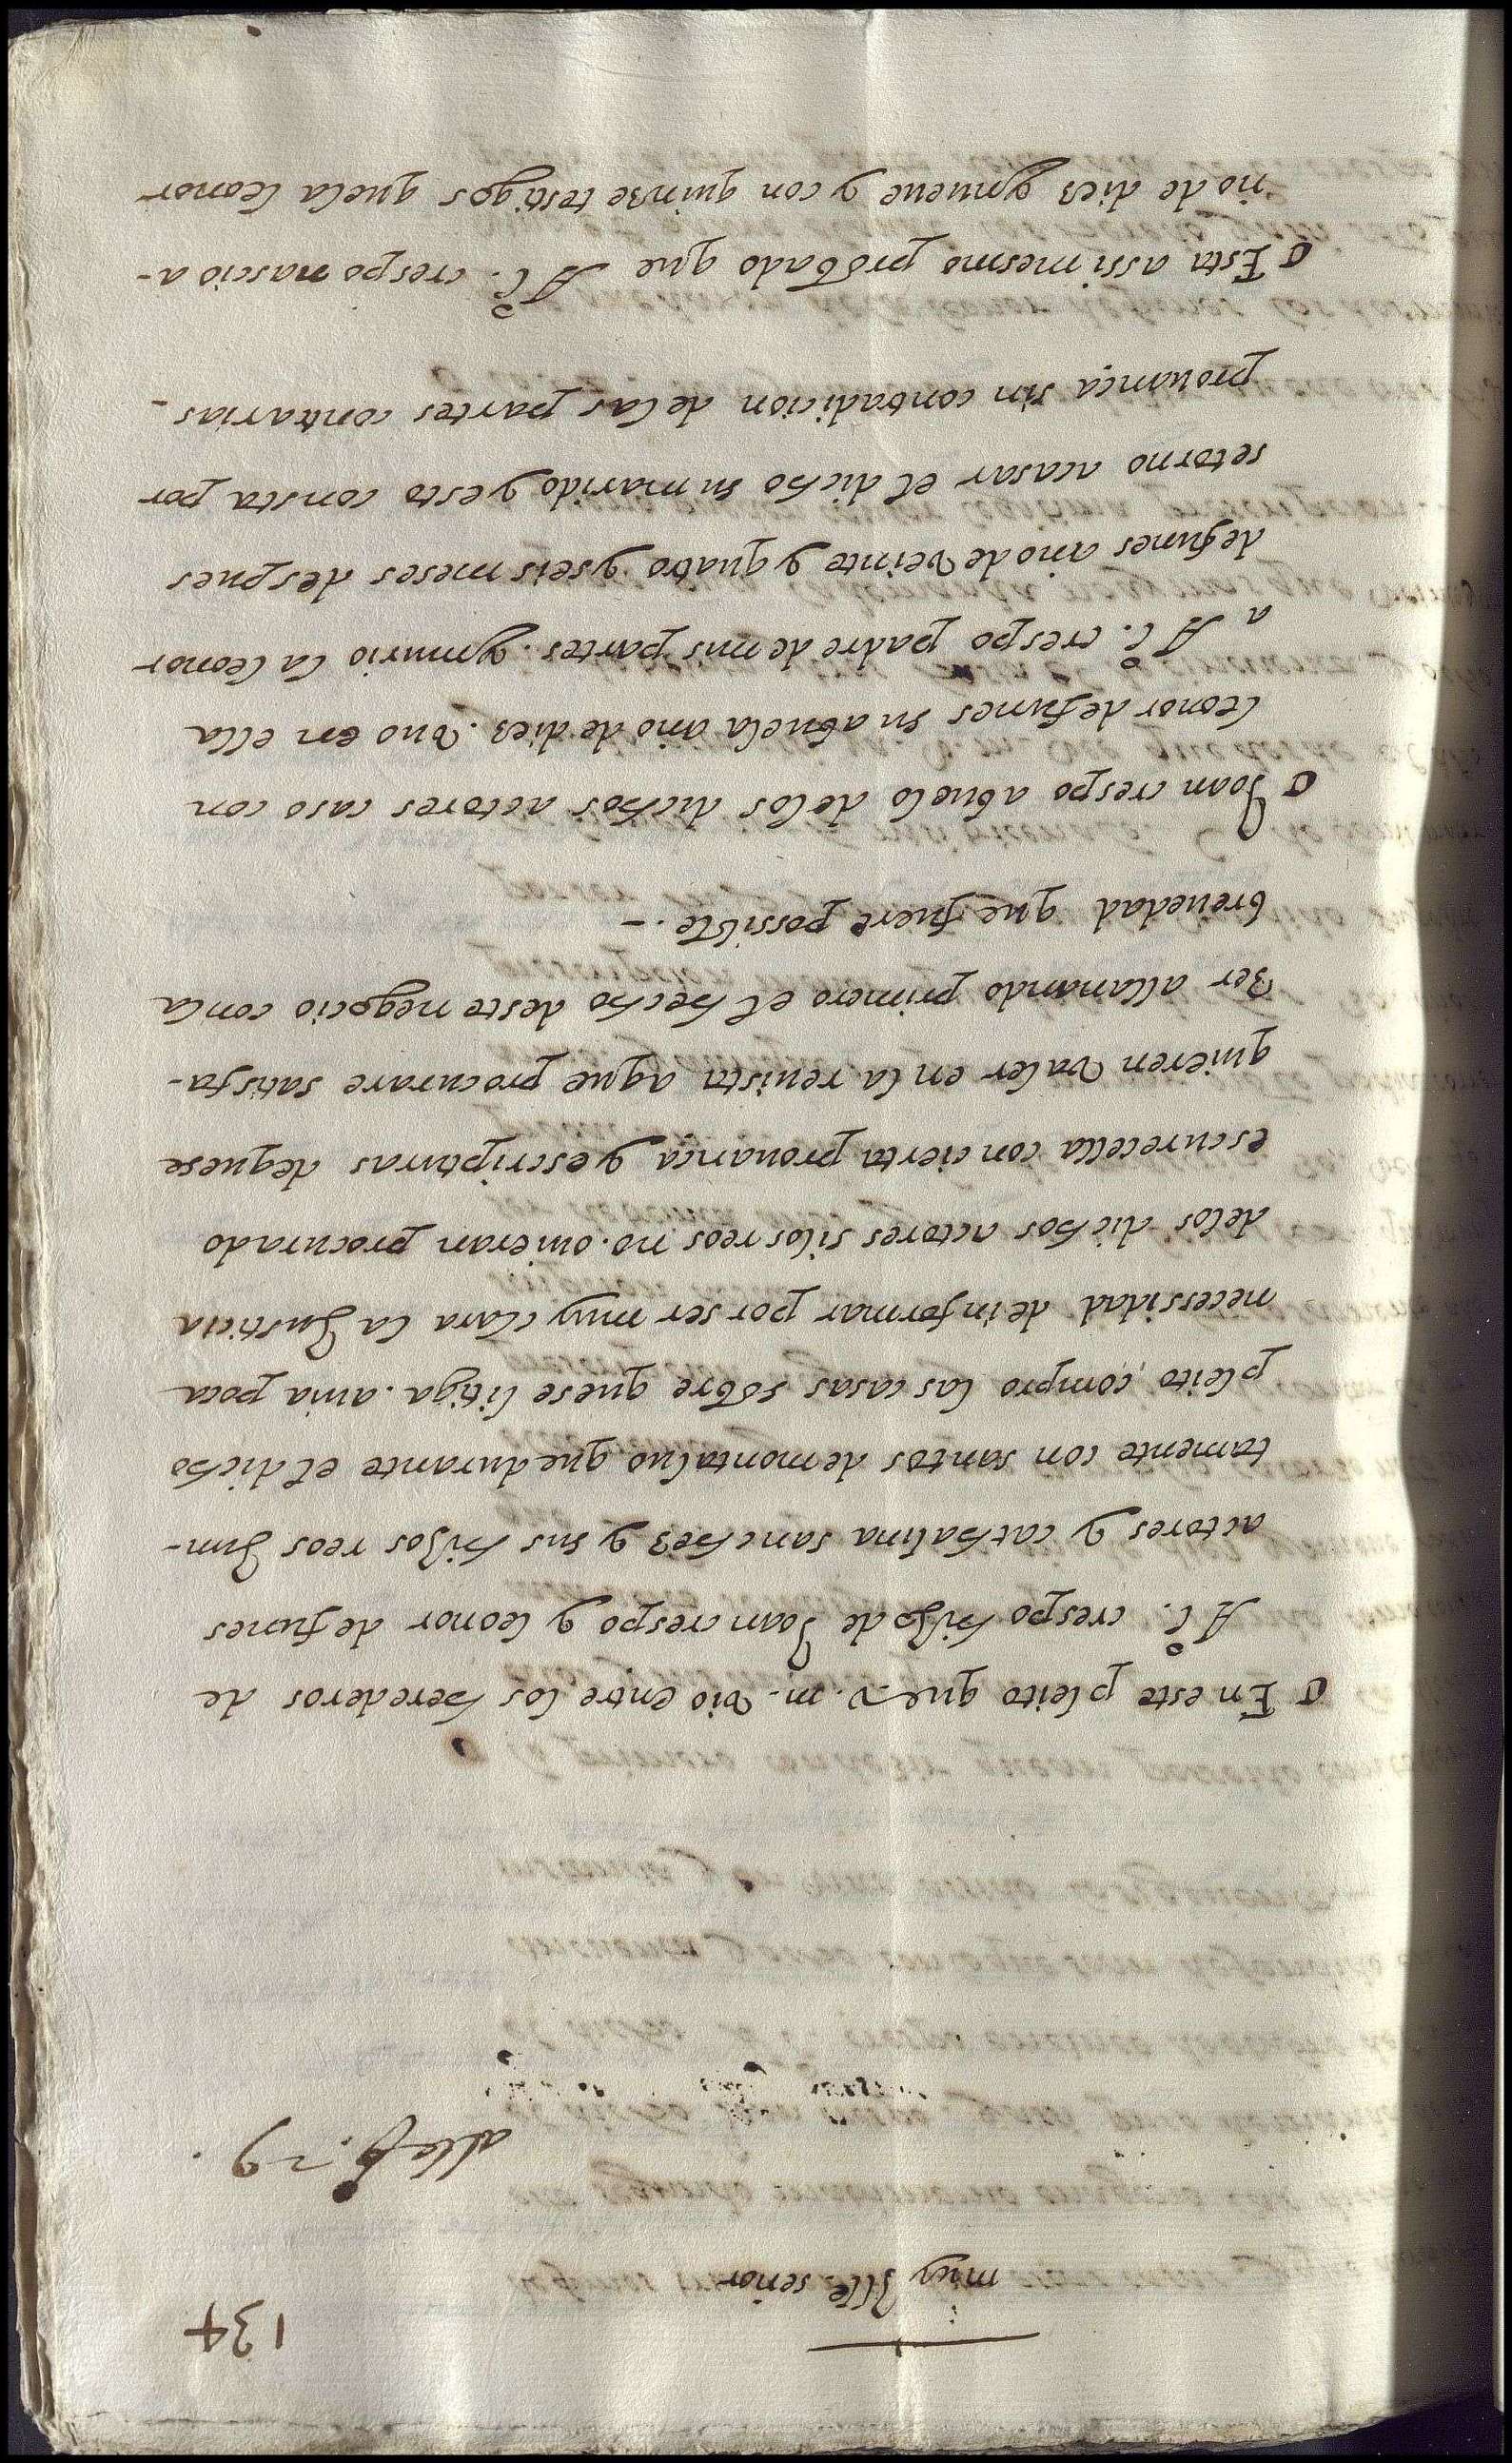 134
muy Ille señor
σ En este pleito que v. m. vio entre los herederos de
Al.º crespo hijo de Joan crespo y leonor de funes
actores y cathalina sanchez y sus hijos reos Jun-
tamente con santos de montaluo que durante el dicho
pleito compro las casas sobre que se litiga. auia poca
necessidad de informar por ser muy clara la Justicia
de los dichos actores si los reos no. ouieran procurado
escurecella con cierta prouança y escripturas de que se
quieren valer en la reuista a que procurare satisfa-
zer allanando primero el hecho deste negocio con la
breuedad que fuere possible. -
σ Joan crespo abuelo de los dichos actores caso con
leonor de funes su abuela año de diez. Vuo en ella
a Al.º crespo padre de mis partes. y murio la leonor
de funes año de veinte y quatro y seis meses despues
se torno a casar el dicho su marido y esto consta por
prouança sin contradicion de las partes contrarias -
σ Esta assi mesmo probado que Al.º crespo nascio a-
ño de diez y nueue y con quinze testigos que la leonor